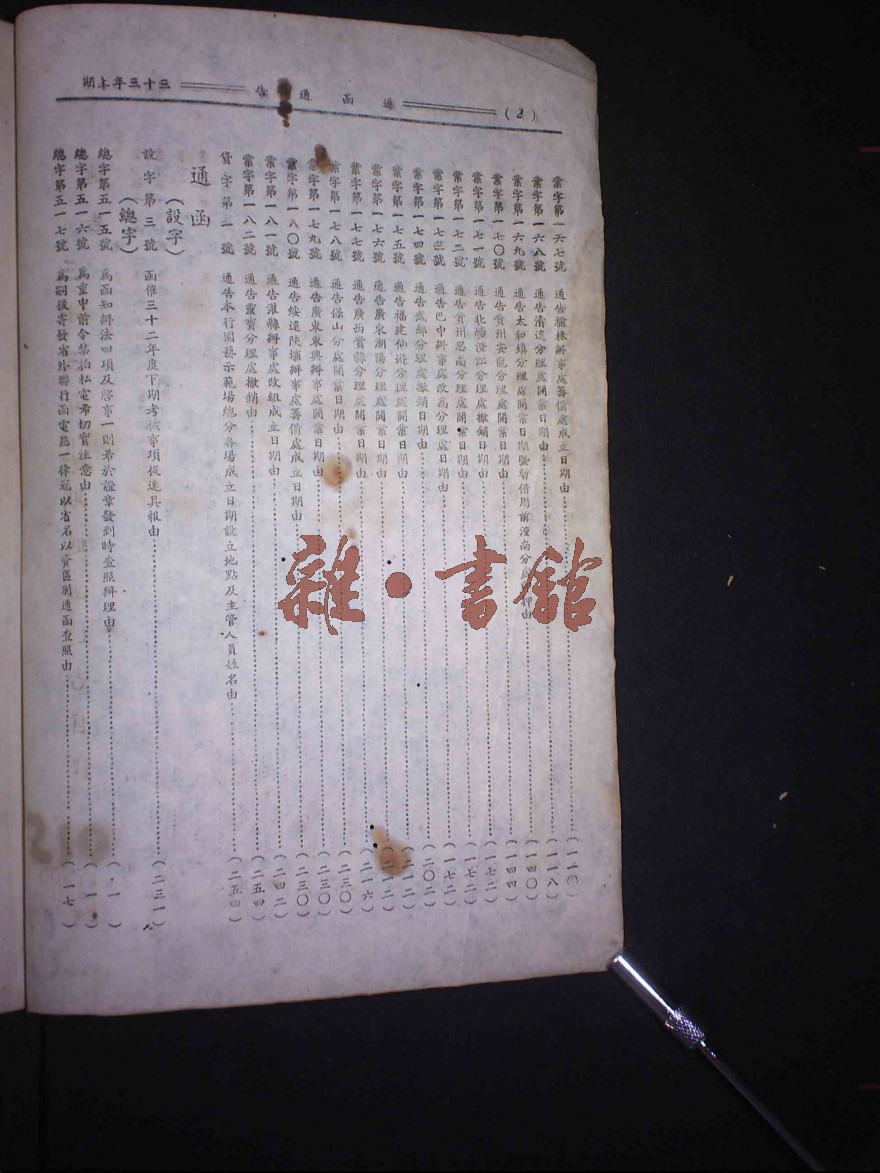 (2) 通函通告 三十三年上期
業字第一六七號 通告榆林辦事處籌備處成立日期由 (一一〇)
業字第一六八號 通告清遠分理處開業日期由 (一一八)
業字第一六九號 通告太和鎮分理處開業日期暨暫借用前潼南分處 押由 (一四〇)
業字第一七〇號 通告貴州安龍分理處開業日期由 (一四四)
業字第一七一號 通告北碚澄江分理處撤銷日期由 (一七二)
業字第一七二號 通告貴州思南分理處開業日期由 (一七二)
業字第一七三號 通告巴中辦事處改為分理處日期由 (一七二)
業字第一七四號 通告武都分理處撤銷日期由 (二〇二)
業字第一七五號 通告福建仙遊分理處開業日期由 (二一二)
業字第一七六號 通告廣東潮陽分理處開業日期由 (二一二)
業字第一七七號 通告廣西賀縣分理處開業日期由 (二一六)
業字第一七八號 通告保山分處開業日期由 (二三〇)
業字第一七九號 通告廣東東興辦事處開業日期由 (二三〇)
業字第一八〇號 通告綏遠陝壩辦事處籌備處成立日期由 (二三〇)
業字第一八一號 通告濰縣辦事處改組成立日期由 (二四二)
業字第一八二號 通告靈寶分理處撤銷由 (二五四)
貸字第一號 通告本行園藝示範場總分各場成立日期設立地點及主管人員姓名由 (二五四)
通函
(設字)
設字第三號 函催三十二年度下期考核事項從速具報由 (二三一)
(總字)
總字第五一五號 為函知辦法四項及啓事一則希於證章發到時查照辦理由 (一)
總字第五一六號 為重申前令禁拍私電希切實注意由 (一)
總字第五一七號 為嗣後寄發省外聯行函電絡一律冠以省名以資區別通函查照由 (一七)
雜·書館